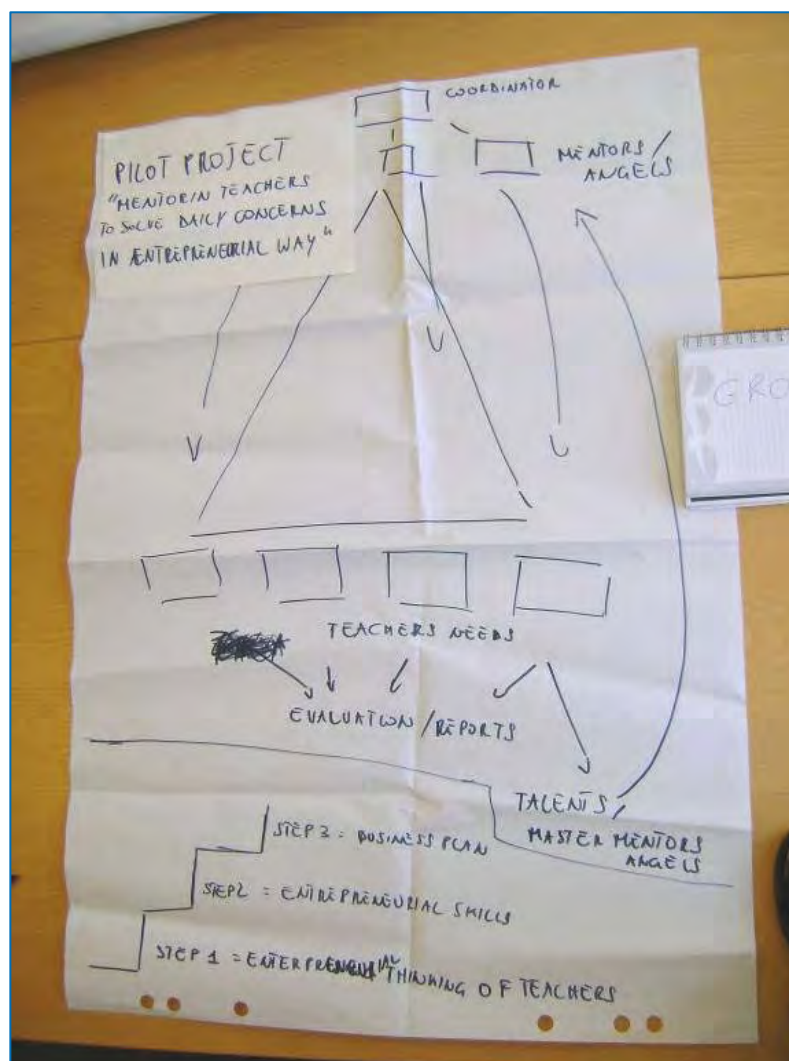 COORDINATOR
PILOT PROJECT
"MENTORIN TEACHERS
TO SOLVE DAILY CONCERNS
IN ENTREPRENEURIAL WAY"
MENTORS/
ANGELS
GRO
TEACHERS NEEDS
EVALUATION/REPORTS
TALENTS/
MASTER MENTORS
ANGELS
STEP 3 = BUSINESS PLAN
STEP 2 = ENTREPRENEURIAL SKILLS
STEP 1 = THINKING OF TEACHERS